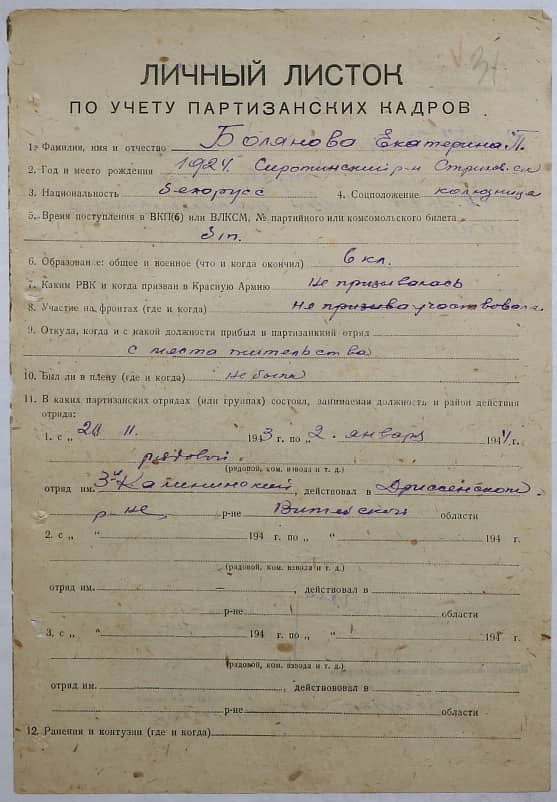 ЛИЧНЫЙ ЛИСТОК
ПО УЧЕТУ ПАРТИЗАНСКИХ КАДРОВ
1. Фамилия, имя и отчество Болянова Екатерина П.
2. Год и место рождения 1924. Сиротинский р-н
3. Национальность белорусс 4. Соцположение колхозница
5. Время поступления в ВКП(б) или ВЛКСМ, № партийного или комсомольского билета
б/п.
6. Образование: общее и военное (что и когда окончил) 6 кл.
7. Каким РВК и когда призван в Красную Армию Не призывалась
8. Участие на фронтах (где и когда) не участвовала
9. Откуда, когда и с какой должности прибыл в партизанкий отряд
с места жительства
10. Был ли в плену (где и когда) не была
11. В каких партизанских отрядах (или группах) состоял, занимаемая должность и район действия
отряда:
1. с „ 20 II. 1943 г. по „ 2. января 1944 г.
рядовой
(рядовой, ком. взвода и т. д.)
отряд им. 3й Калининский, действовал в Дриссенском
р-не р-не Витебской области
2. с „ “ 194 г. по „ “ 194 г.
(рядовой, ком. взвода и т. д.)
отряд им. , действовал в
р-не области
3. с „ “ 194 г. по „ “ 194 г.
(рядовой, ком. взвода и т. д.)
отряд им. , действовал в
р-не области
12. Ранения и контузии (где и когда)